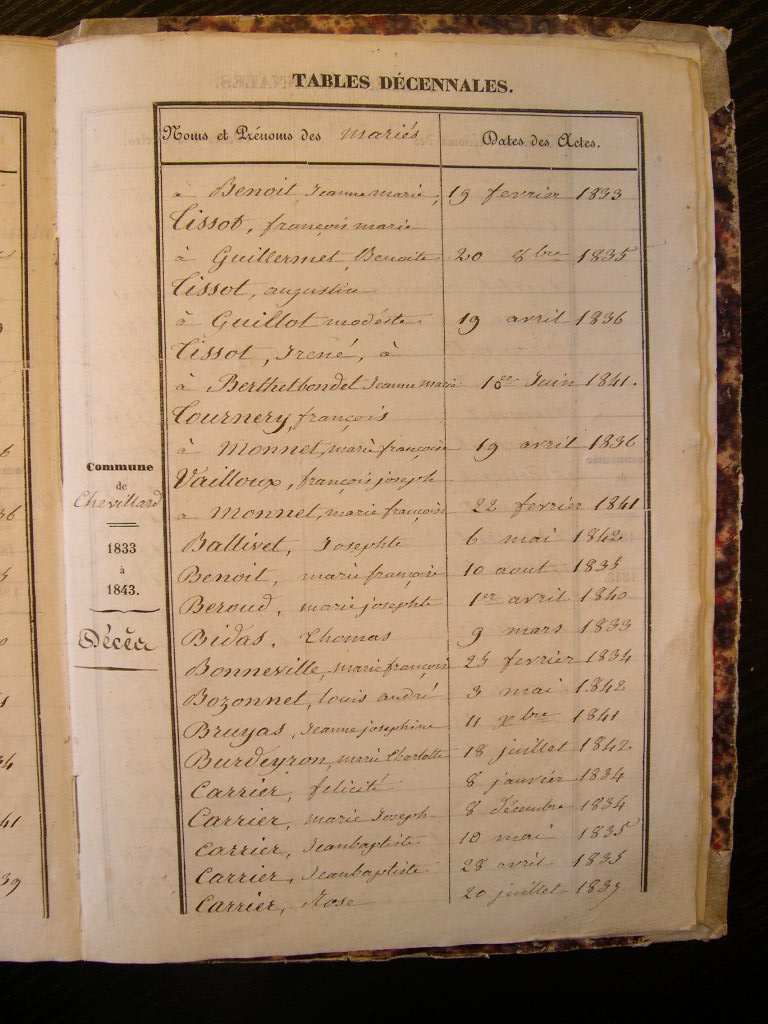 TABLES DÉCENNALES.
Noms et Prénoms des mariés
Dates des Actes.
à Benoit, Jeanne marie, 19 fevrier 1833
Tissot, françois marie
à Guillermet, Benoite 20 8bre 1835
Tissot, augustin
à Guillot modéste 19 avril 1836
Tissot, Irené, à
à Berthetbondet Jeanne Marie Juin 1841.
Tournery, françois
à Monnet, marie françoise 19 avril 1836
Vailloux, françois joseph
à Monnet, marie françoise 22 fevrier 1841
Commune
de
Chevillard
1833
à
1843.
Décéa
Ballivet, Josephte 6 mai 1842
Benoit, marie françoise 10 aout 1835
Beroud, marie josephte 1er avril 1840
Bidas, Thomas 9 mars 1833
Bonneville, marie françoise 25 fevrier 1834
Bozonnet, louis andré 3 mai 1842
Bruyas, Jeanne josephine 11 xbre 1841
Burdeyron, marie Charlotte 18 juillet 1842
Carrier, felicité 8 janvier 1834
Carrier, marie Joseph 8 décembre 1834
Carrier, Jean baptiste 10 mai 1835
Carrier, Jean baptiste 28 avril 1835
Carrier, Rose 20 juillet 1839